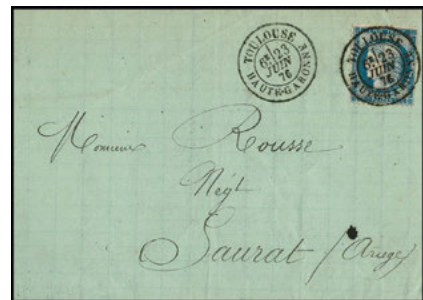 TOULOUSE
6E/23
JUIN
76
HAUTE-GARONNE
TOULOUSE
6E/23
JUIN
76
HAUTE-GARONNE
Monsieur Rousse
Négt
Saurat (Ariege)